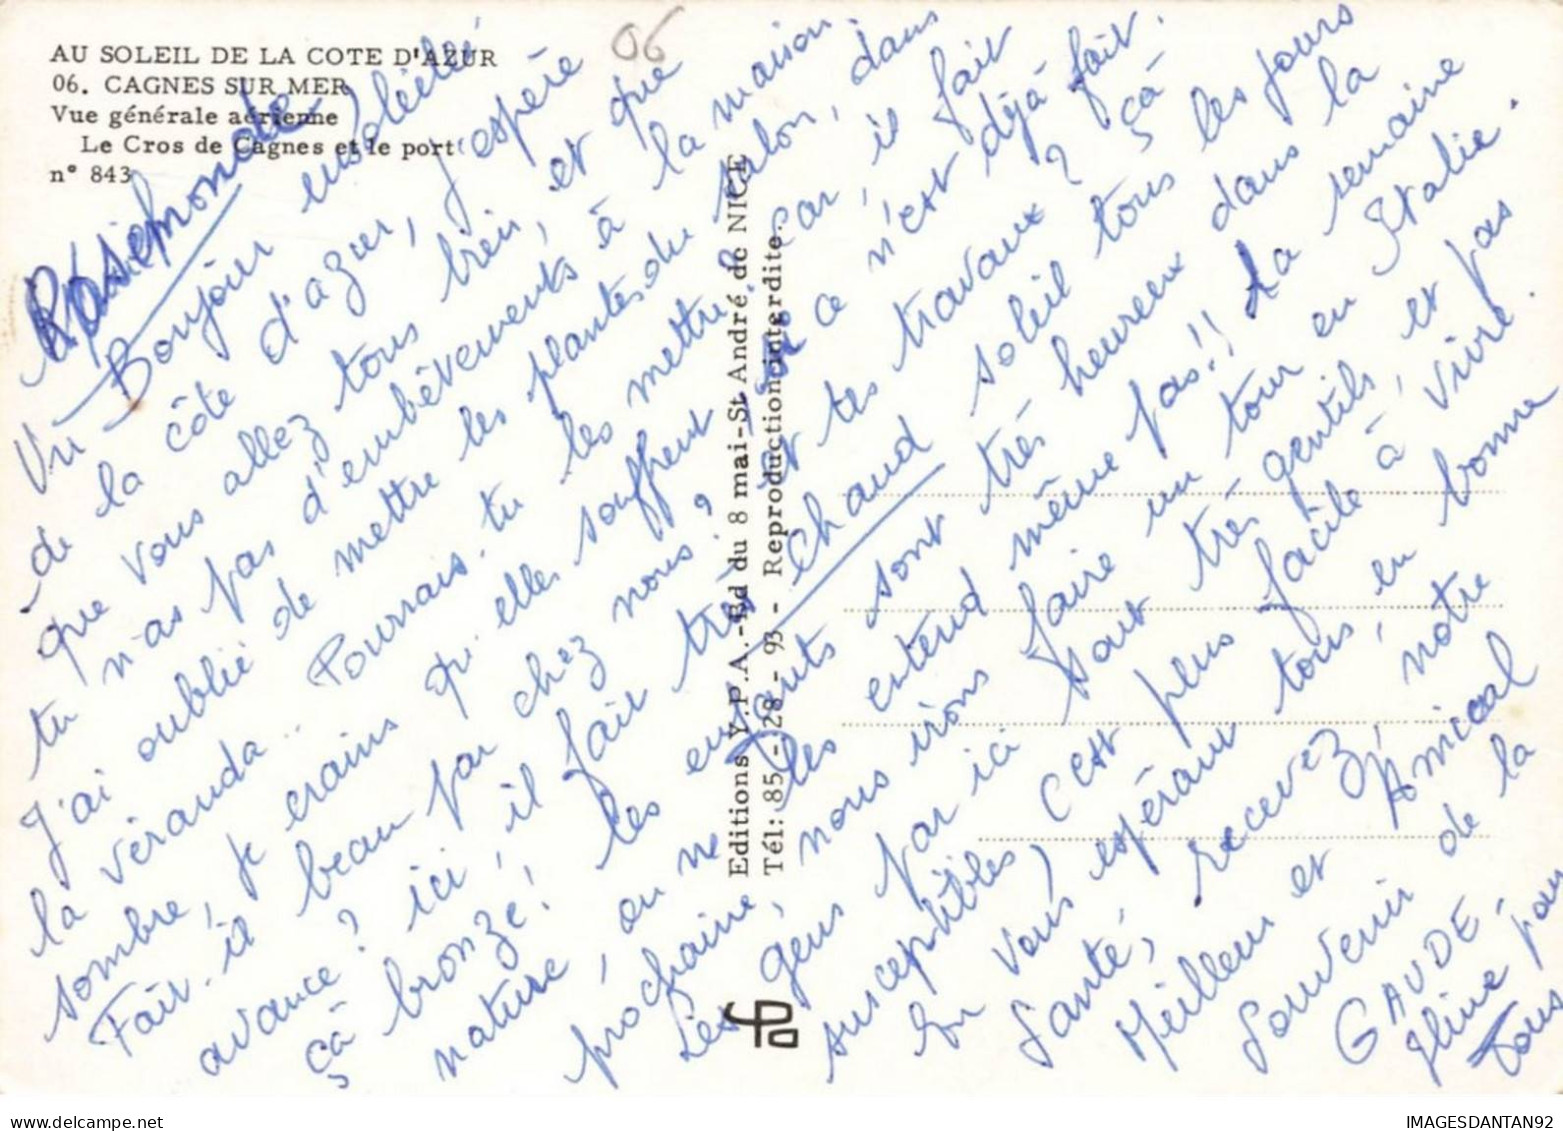 AU SOLEIL DE LA COTE D'AZUR
06. CAGNES SUR MER
Vue générale aérienne
Le Cros de Cagnes et le port
n° 843
06
Rosemonde
Un Bonjour ensoleillé
de la côte d'azur, j'espère
que vous allez tous bien, et que
tu n'as pas d'embêtements à la maison
J'ai oublié de mettre les plantes du salon, dans
la véranda.. Pourrais-tu les mettre? car, il fait
sombre, je crains qu'elles souffrent, si ce n'est déjà fait.
Fait-il beau par chez nous? et tes travaux? çà
avance? ici, il fait très chaud soleil tous les jours
çà bronze! les enfants sont très heureux dans la
nature, on ne les entend même pas!! La semaine
prochaine, nous irons faire un tour en Italie.
Les gens par ici sont très gentils, et pas
susceptibles) c'est plus facile à vivre.
En vous espérant tous, en bonne
Santé, recevez, notre
Meilleur et Amical
Souvenir de la
GAUDE-
pour
Tous
Editions Y.P.A.-Ed du 8 mai-St André de NICE
Tél: 85 - 28 - 93 - Reproduction interdite.
IMAGESDANTAN92